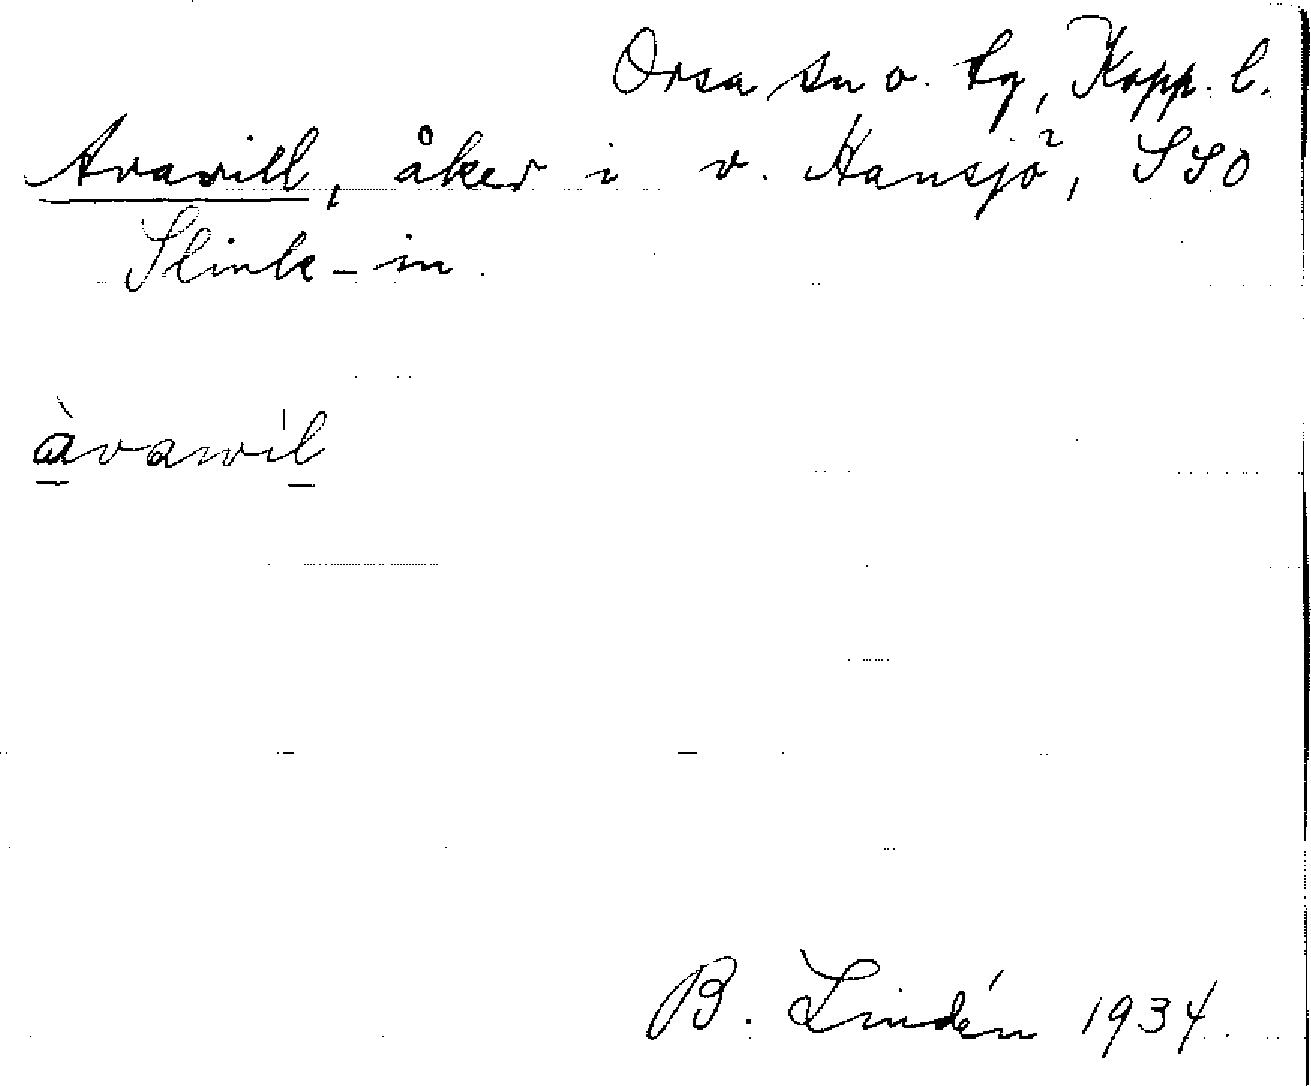 Orsa sn o. tg, Kopp. l.
Avavill, åker i v. Hansjö, SSO
Slink-in.
àvawil
B. Lindén 1934.